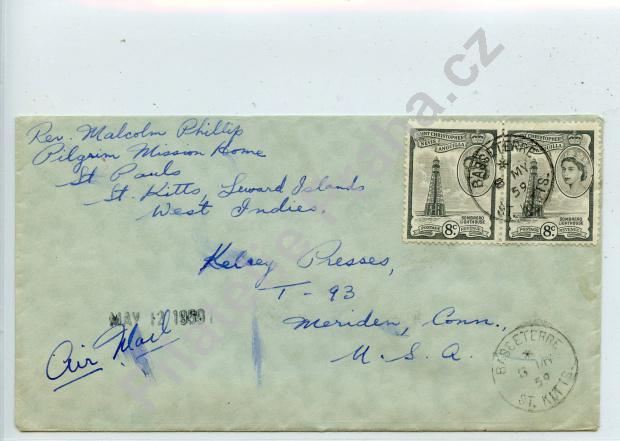 Rev. Malcolm Phillip
Pilgrim Mission Home
St Pauls
St. Kitts, Leward Islands
West Indies.
SAINT CHRISTOPHER
NEVIS ANGUILLA
SOMBRERO
LIGHTHOUSE
POSTAGE 8c REVENUE
SAINT CHRISTOPHER
NEVIS ANGUILLA
SOMBRERO
LIGHTHOUSE
POSTAGE 8c REVENUE
BASSETERRE
MY
59
ST. KITTS.
Kelsey Presses,
T-93
Meriden, Conn.,
U.S.A.
MAY 12 1959
Air Mail
BASSETERRE
MY
59
ST. KITTS.